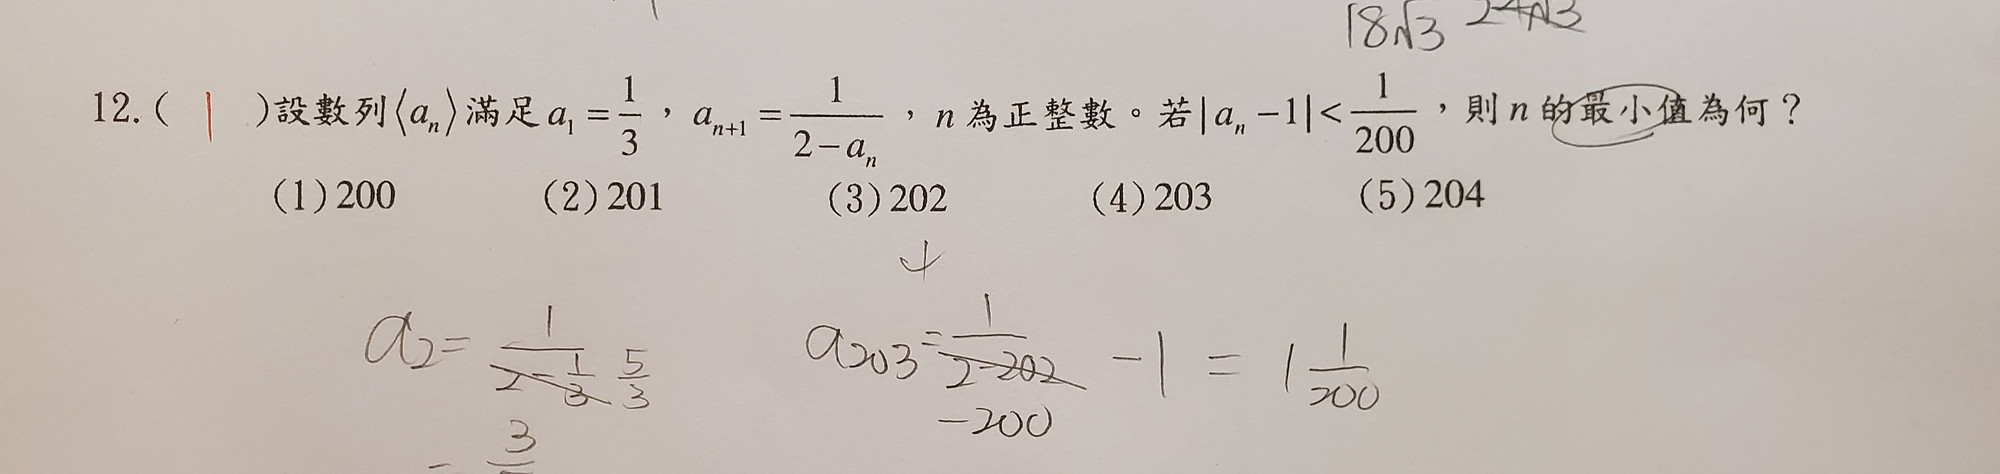 18√3 24√3
12. ( | )設數列⟨aₙ⟩滿足 a₁ = 1/3，aₙ₊₁ = 1/(2−aₙ)，n 為正整數。若|aₙ −1|< 1/200，則 n 的最小值為何？
(1)200 (2)201 (3)202 (4)203 (5)204
a₂= 1/(2−1/3) 5/3 a₂₀₃= 1/(2−202) −1 = 1 1/200
−200
= 3